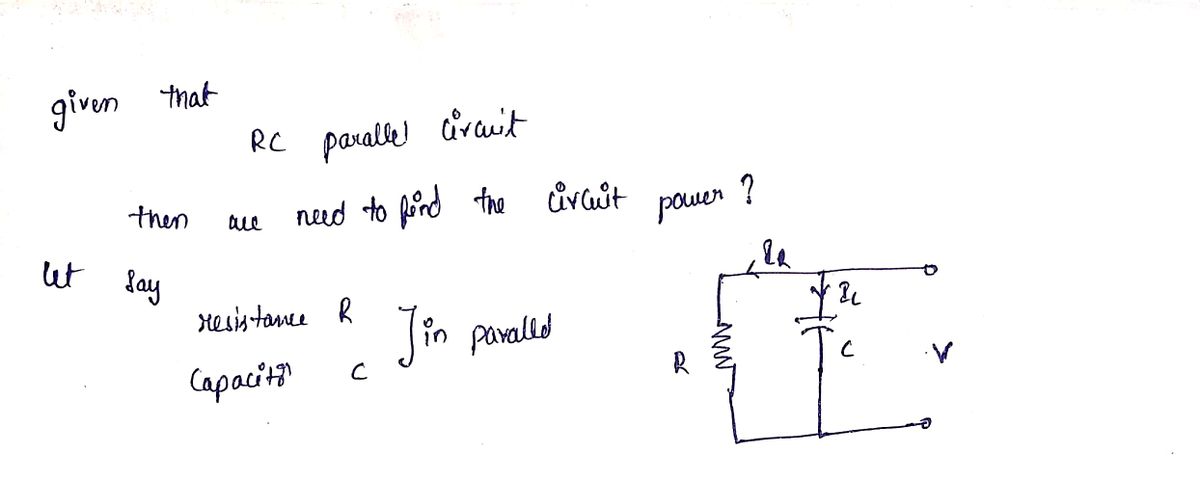 given that
RC parallel circuit
then we need to find the circuit power ?
let say
resistance R
Capacitor C
] in parallel
IR
IC
R
C
V